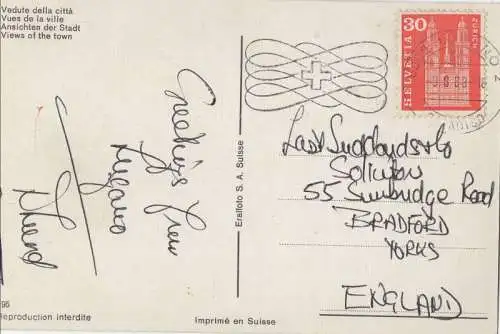 Vedute della città
Vues de la ville
Ansichten der Stadt
Views of the town
Greetings from
Lugano
Eralfoto S. A. Suisse
30
HELVETIA
ZÜRICH
& Co
55 Sunbridge Road
BRADFORD
YORKS
ENGLAND
95
Reproduction interdite
Imprimé en Suisse